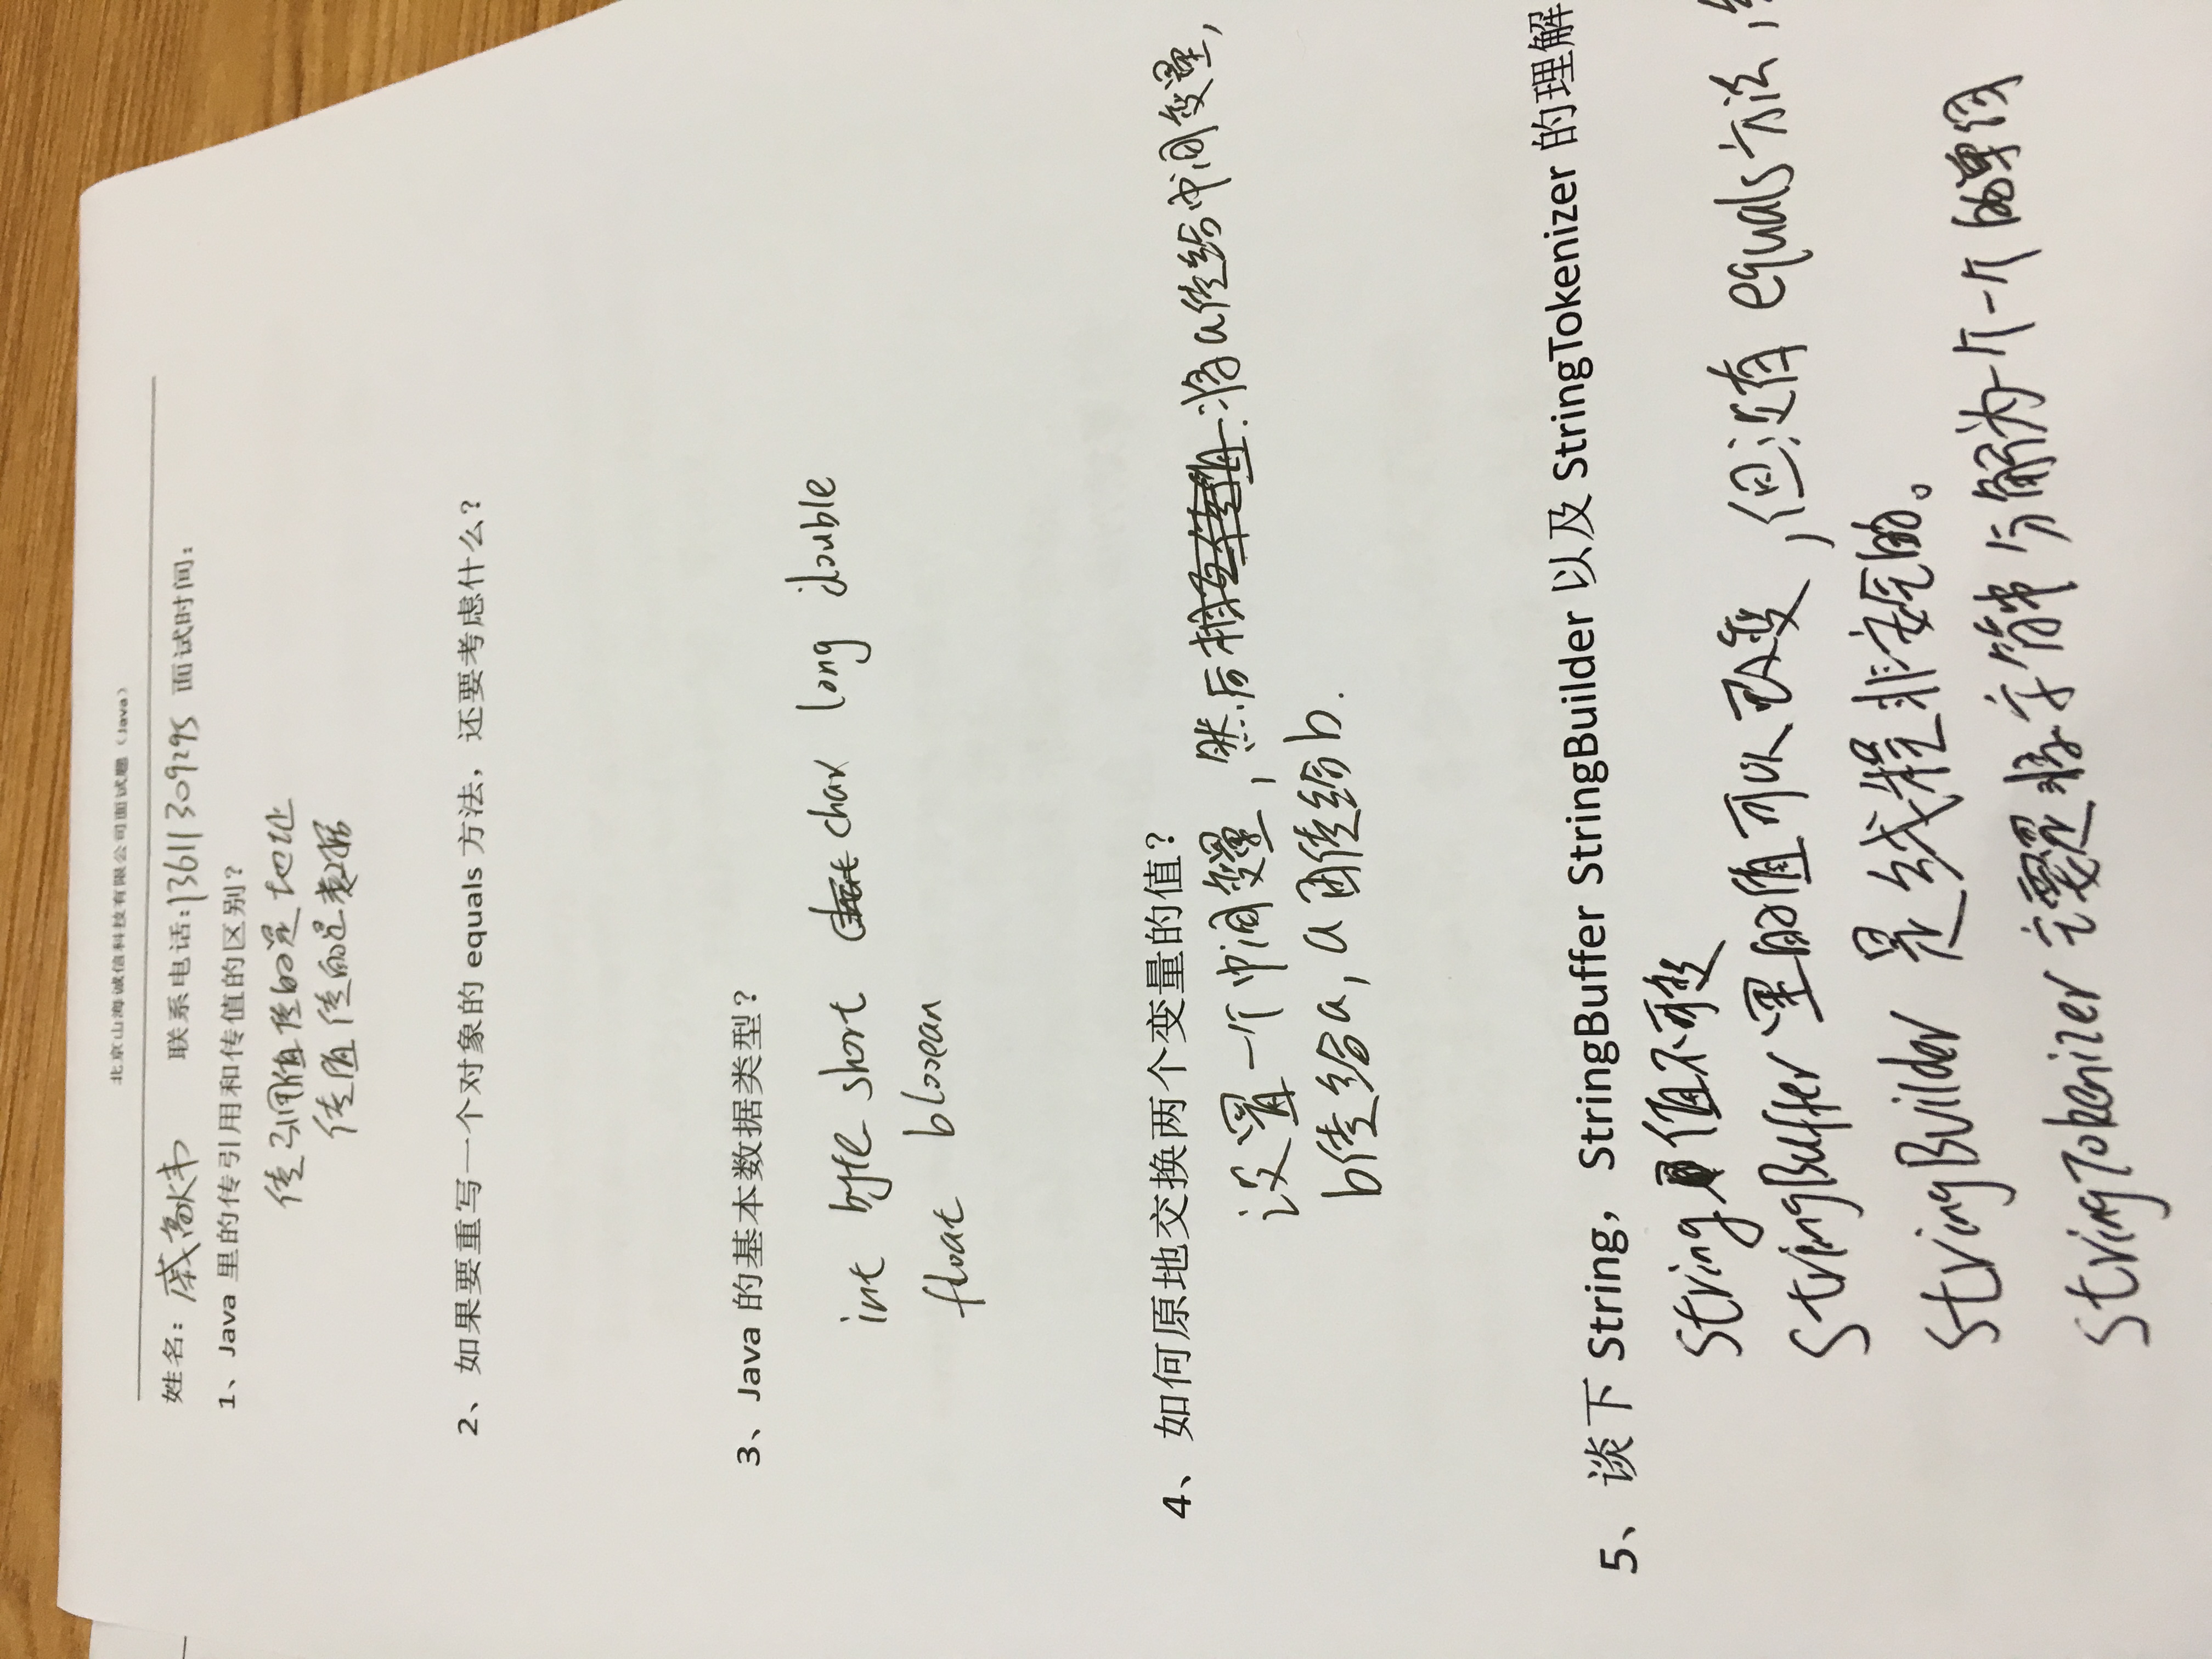 北京山海诚信科技有限公司面试题（Java）
姓名：戚高炜 联系电话：13611309295 面试时间：
1、Java 里的传引用和传值的区别？
传引用值传的是地址
传值传的是数据
2、如果要重写一个对象的 equals 方法，还要考虑什么？
3、Java 的基本数据类型？
int byte short char long double
float blooean
4、如何原地交换两个变量的值？
设置一个中间变量，然后将a传给中间变量，
b传给a，a再传给b.
5、谈下 String，StringBuffer StringBuilder 以及 StringTokenizer 的理解
String值不可变
StringBuffer里的值可以改变，但没有equals方法，
StringBuilder 是线程非安全的。
StringTokenizer 主要是将字符串分解为一个一个的单词